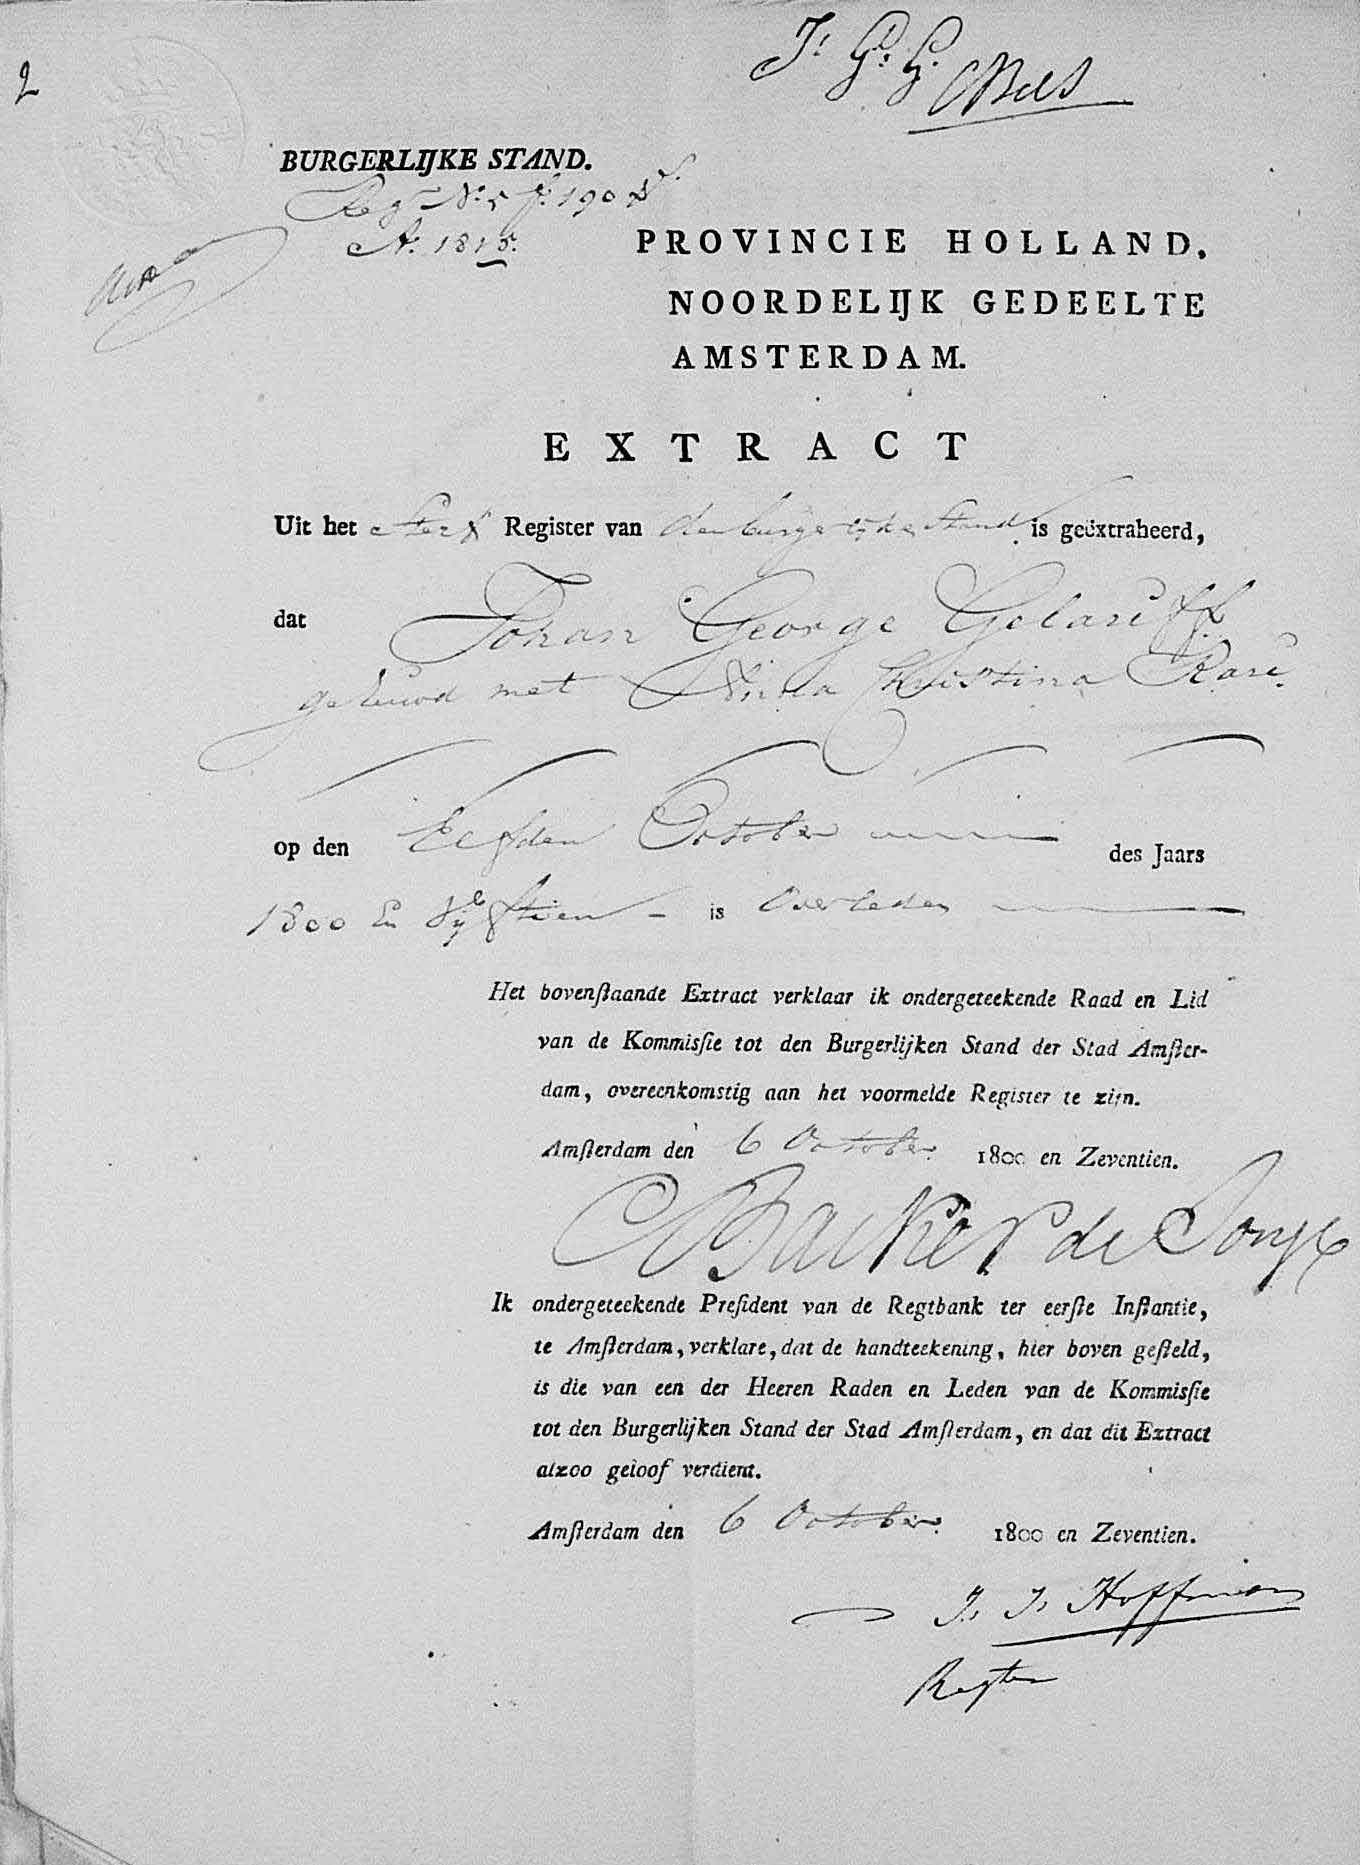 2
BURGERLIJKE STAND.
Regr No. 5 fo. 190 vo.
Ao. 1815.
PROVINCIE HOLLAND,
NOORDELIJK GEDEELTE
AMSTERDAM.
EXTRACT
Uit het Sterf Register van den burgerlijke Stand is geëxtraheerd,
dat Johan George Gelarieff
gehuwd met Anna Christina Rari
op den Elfden October des Jaars
1800 En Vijftien is Overleden
Het bovenſtaande Extract verklaar ik ondergeteekende Raad en Lid
van de Kommisſie tot den Burgerlijken Stand der Stad Amſter-
dam, overeenkomstig aan het voormelde Register te zijn.
Amſterdam den 6 October 1800 en Zeventien.
Backer de Jonge
Ik ondergeteekende Preſident van de Regtbank ter eerſte Inſtantie,
te Amſterdam, verklare, dat de handteekening, hier boven geſteld,
is die van een der Heeren Raden en Leden van de Kommisſie
tot den Burgerlijken Stand der Stad Amſterdam, en dat dit Extract
alzoo geloof verdient.
Amſterdam den 6 October 1800 en Zeventien.
J. J. Hoffman
Regter